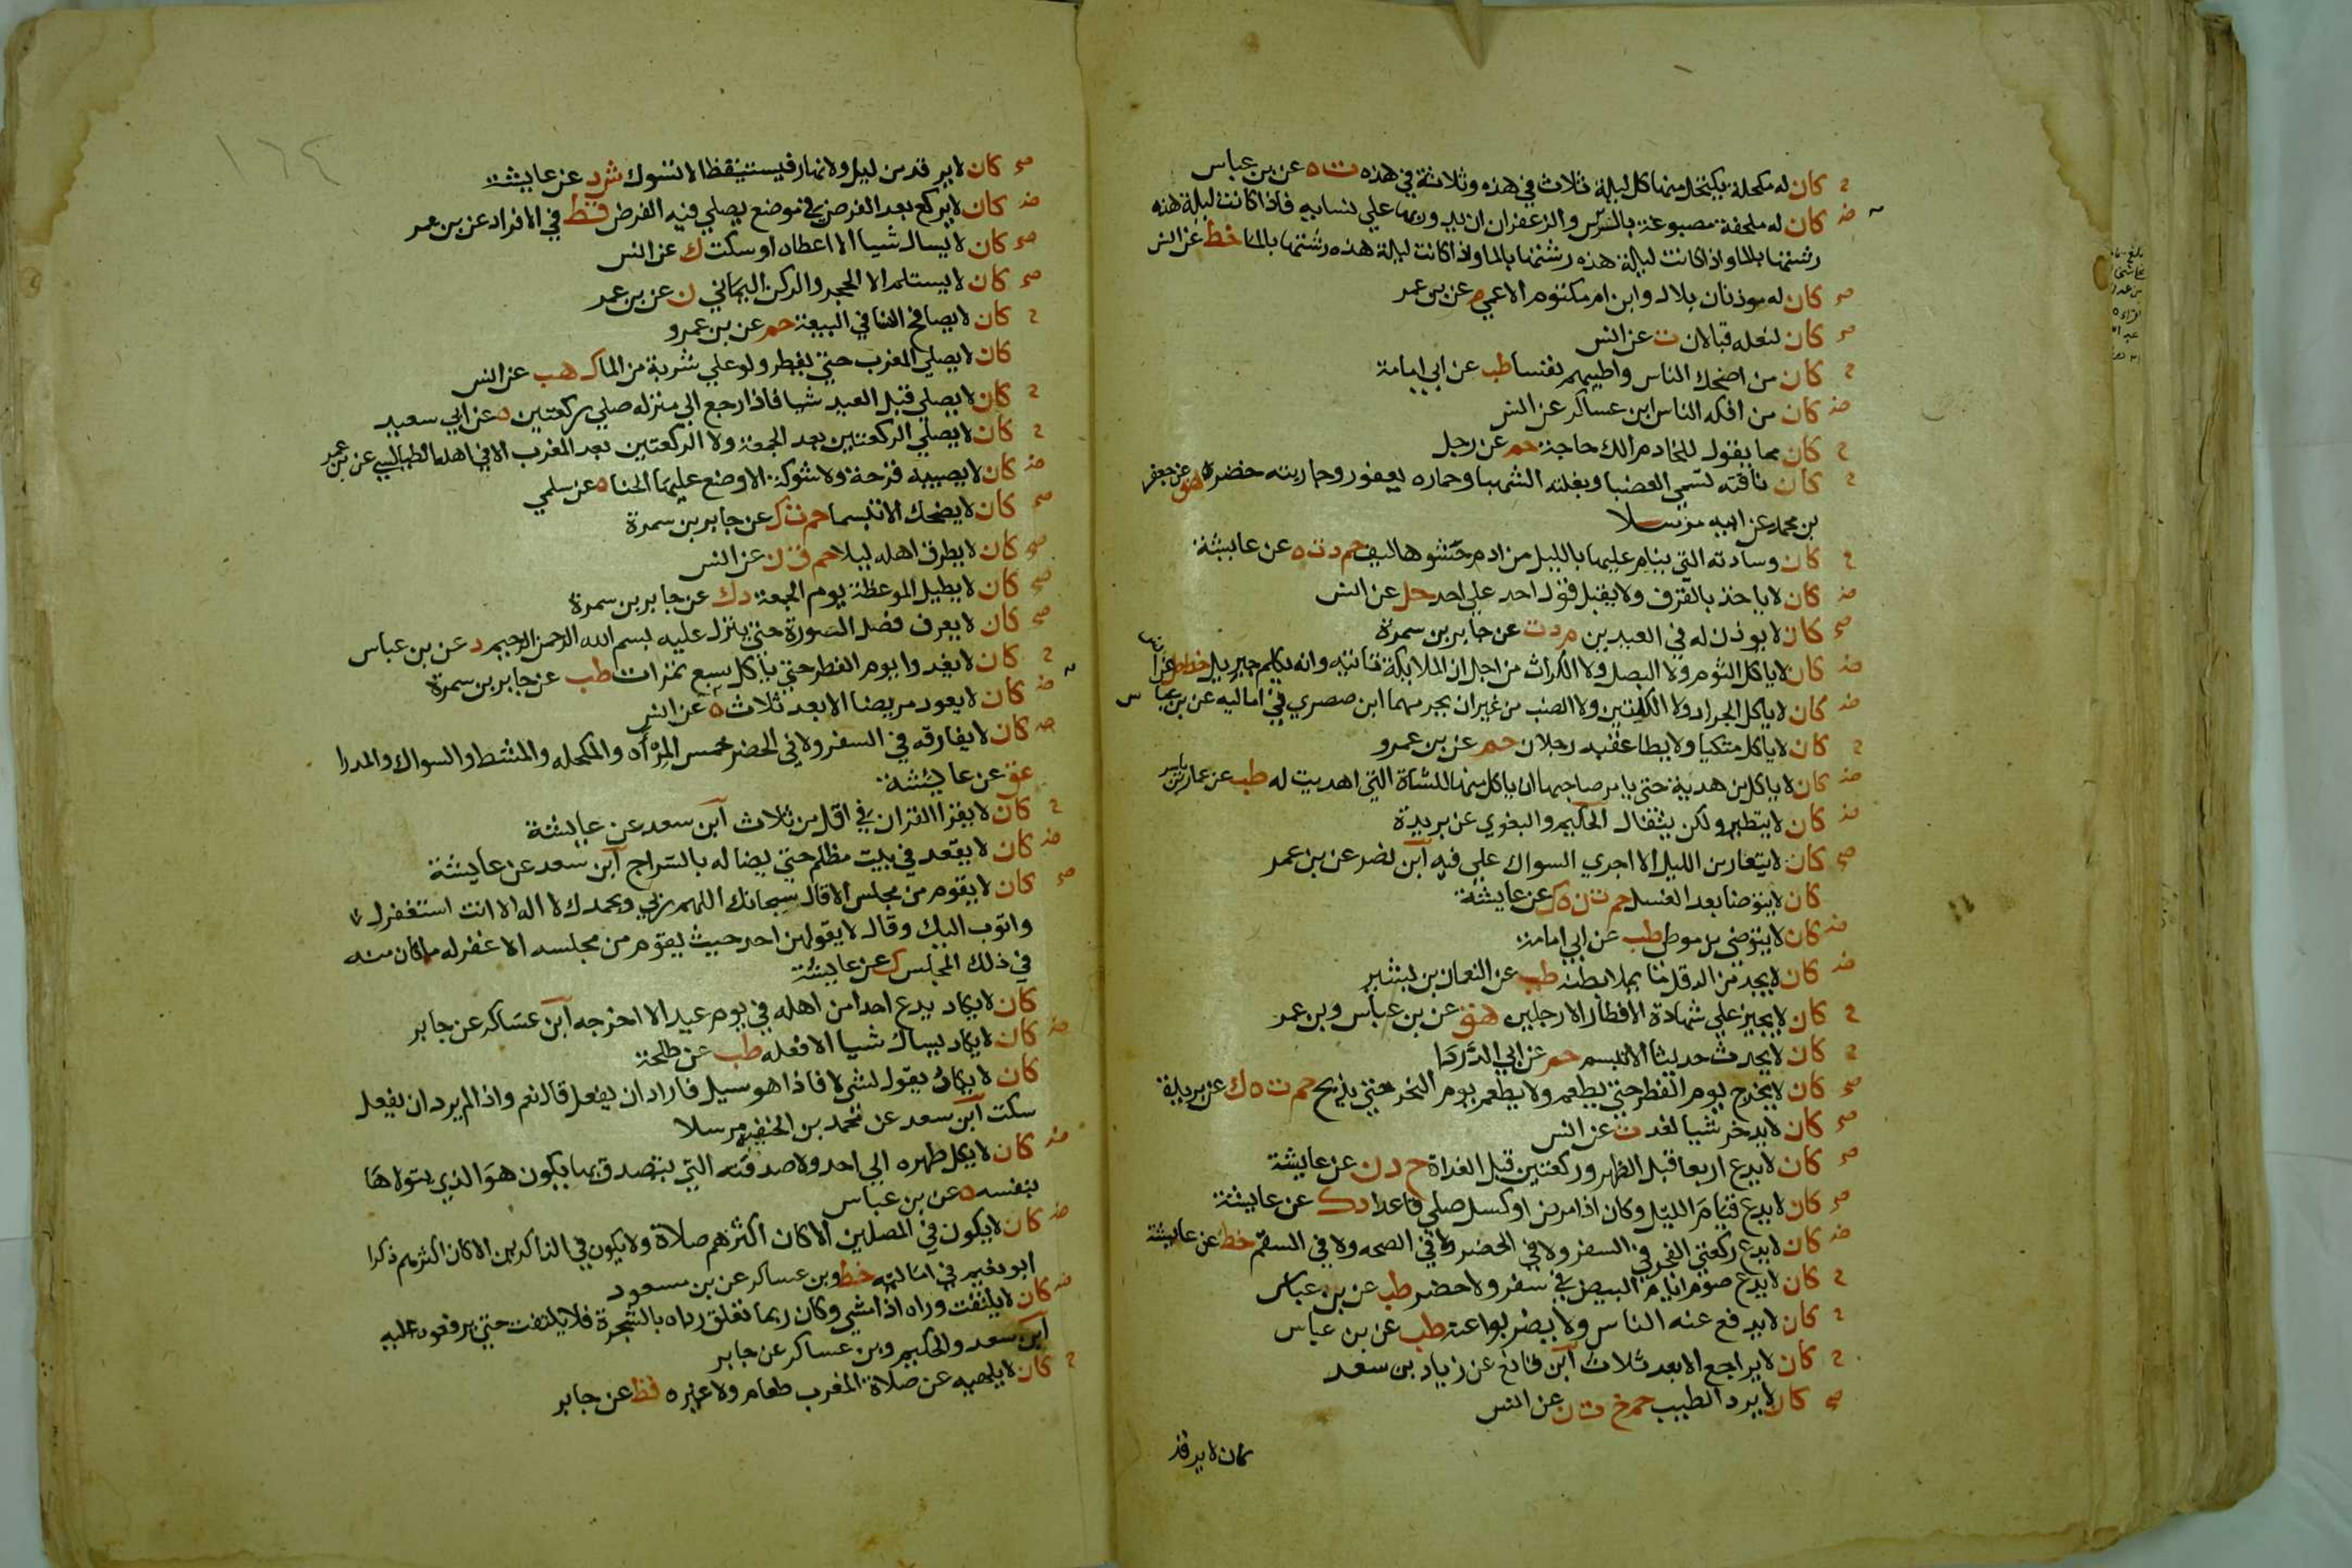 كان له مكحلة يكتحل منها كل ليلة ثلاث في هذه وثلاثة في هذه ت ه عن بن عباس
كان له ملحفة مصبوغة بالورس والزعفران يدور بها علي نسايه فاذا كانت ليلة هذه
رشتها بالما واذا كانت ليلة هذه رشتها بالما واذا كانت ليلة هذه رشتها بالما خط عن انس
كان له موذنان بلال وابن ام مكتوم الاعمي م عن بن عمر
كان لنعله قبالان ت عن انس
كان من اضحك الناس واطيبهم نفسا طب عن ابي امامة
كان من افكه الناس ابن عساكر عن انس
كان مما يقول للخادم الك حاجة حم عن رجل
كان ناقته تسمي العضبا وبغلته الشهبا وحماره يعفور وجاريته خضرة هق عن جعفر
بن محمد عن ابيه مرسلا
كان وسادته التي ينام عليها بالليل من ادم حشوها ليف حم د ت ه عن عايشة
كان لا ياخذ بالقرف ولا يقبل قول احد علي احد حل عن انس
كان لا يوذن له في العيدين م د ت عن جابر بن سمرة
كان لا ياكل الثوم ولا البصل ولا الكراث من اجل ان الملايكة تاتيه وانه يكلم جبريل خط عن انس
كان لا ياكل الجراد ولا الكلوتين ولا الضب من غير ان يحرمهما ابن صصري في اماليه عن بن عباس
كان لا ياكل متكيا ولا يطا عقبه رجلان حم عن بن عمرو
كان لا ياكل من هدية حتي يامر صاحبها ان ياكل منها للشاة التي اهديت له طب عن عمار بن ياسر
كان لا يتطير ولكن يتفال الحكيم والبغوي عن بريدة
كان لا يتعار من الليل الا اجري السواك علي فيه ابن نصر عن بن عمر
كان لا يتوضا بعد الغسل حم ت ن ه ك عن عايشة
كان لا يتوضي من موطي طب عن ابي امامة
كان لا يجد من الدقل ما يملا بطنه طب عن النعمان بن بشير
كان لا يجيز علي شهادة الافطار الا رجلين هق عن بن عباس وبن عمر
كان لا يحدث حديثا الا تبسم حم عن ابي الدردا
كان لا يخرج يوم الفطر حتي يطعم ولا يطعم يوم النحر حتي يذبح حم ت ه ك عن بريدة
كان لا يدخر شيا لغد ت عن انس
كان لا يدع اربعا قبل الظهر وركعتين قبل الغداة خ د ن عن عايشة
كان لا يدع قيام الليل وكان اذا مرض او كسل صلي قاعدا د ك عن عايشة
كان لا يدع ركعتي الفجر في السفر ولا في الحضر ولا في الصحه ولا في السقم خط عن عايشة
كان لا يدع صوم ايام البيض في سفر ولا حضر طب عن بن عباس
كان لا يدفع عنه الناس ولا يضربوا عنه طب عن بن عباس
كان لا يراجع الابعد ثلاث ابن قانع عن زياد بن سعد
كان لا يرد الطيب حم خ ت ن عن انس
كان لا يرقد
١٦٤
كان لا يرقد من ليل ولا نهار فيستيقظ الا تسوك ش د عن عايشة
كان لا يركع بعد الفرض في موضع يصلي فيه الفرض قط في الافراد عن بن عمر
كان لا يسال شيا الا اعطاه او سكت ك عن انس
كان لا يستلم الا الحجر والركن اليماني ن عن بن عمر
كان لا يصافح النسا في البيعة حم عن بن عمرو
كان لا يصلي المغرب حتي يفطر ولو علي شربة من الما ك هب عن انس
كان لا يصلي قبل العيد شيا فاذا رجع الي منزله صلي ركعتين ه عن ابي سعيد
كان لا يصلي الركعتين بعد الجمعة ولا الركعتين بعد المغرب الا في اهله الطيالسي عن بن عمر
كان لا يصيبه قرحة ولا شوكة الا وضع عليها الحنا ه عن سلمي
كان لا يضحك الا تبسما حم ت ك عن جابر بن سمرة
كان لا يطرق اهله ليلا حم ق ن عن انس
كان لا يطيل الموعظة يوم الجمعة د ك عن جابر بن سمرة
كان لا يعرف فصل السورة حتي ينزل عليه بسم الله الرحمن الرحيم د عن بن عباس
كان لا يغدوا يوم الفطر حتي ياكل سبع تمرات طب عن جابر بن سمرة
كان لا يعود مريضا الا بعد ثلاث ه عن انس
كان لا يفارقه في السفر ولا في الحضر خمس المرآه والمكحله والمشط والسواك والمدرا
عق عن عايشة
كان لا يقرا القران في اقل من ثلاث ابن سعد عن عايشة
كان لا يقعد في بيت مظلم حتي يضا له بالسراج ابن سعد عن عايشة
كان لا يقوم من مجلس الا قال سبحانك اللهم ربي وبحمدك لا اله الا انت استغفرك
واتوب اليك وقال لا يقولهن احد حيث يقوم من مجلسه الا غفر له ما كان منه
في ذلك المجلس ك عن عايشة
كان لا يكاد يدع احدا من اهله في يوم عيد الا اخرجه ابن عساكر عن جابر
كان لا يكاد يسال شيا الا فعله طب عن طلحة
كان لا يكاد يقول لشي لا فاذا هو سيل فاراد ان يفعل قال نعم واذا لم يرد ان يفعل
سكت ابن سعد عن محمد بن الحنفيه مرسلا
كان لا يكل طهره الي احد ولا صدقته التي يتصدق بها يكون هو الذي يتولاها
بنفسه ه عن بن عباس
كان لا يكون في المصلين الا كان اكثرهم صلاة ولا يكون في الذاكرين الا كان اكثرهم ذكرا
ابو نعيم في اماليه خط وبن عساكر عن بن مسعود
كان لا يلتفت وراه اذا مشي وكان ربما تعلق رداه بالشجرة فلا يلتفت حتي يرفعوه عليه
ابن سعد والحكيم وبن عساكر عن جابر
كان لا يلهيه عن صلاة المغرب طعام ولا غيره قط عن جابر